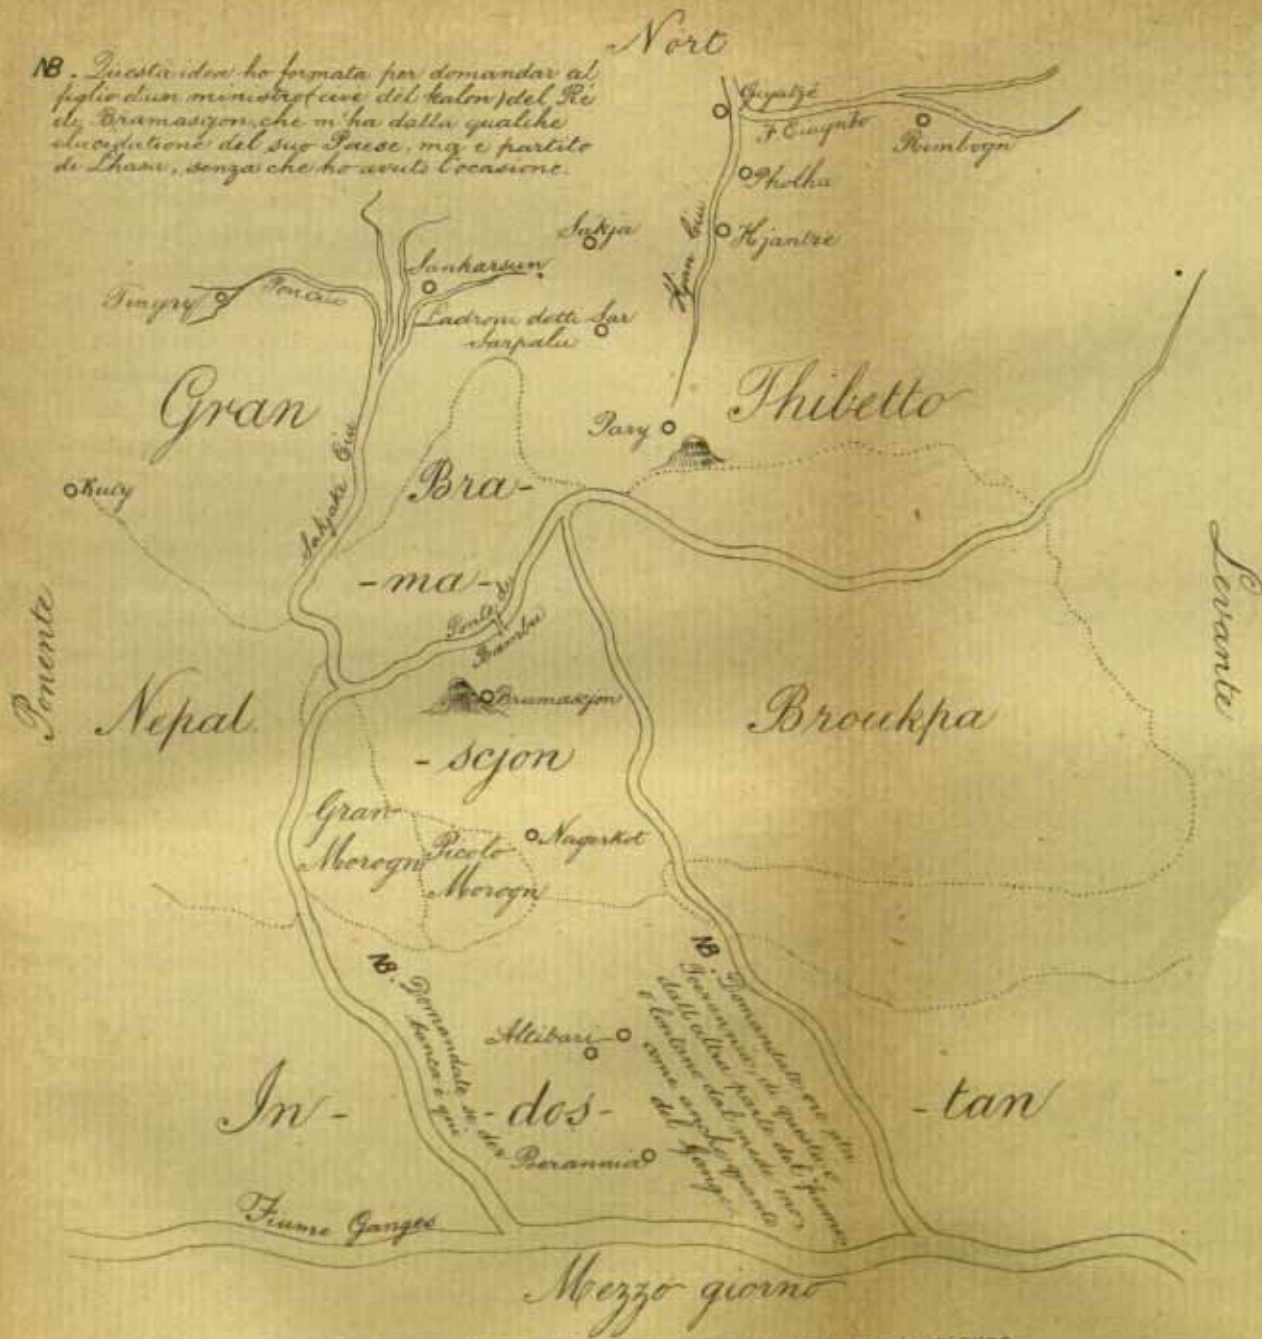 Nort
NB. Questa idea ho formata per domandar al
figlio d'un ministro del Kalon) del Rè
di Bramascjon, che m'ha datta qualche
elucidatione del suo Paese, ma e partito
di Lhasa, senza che ho avuto l'ocasione.
Giyatzé
F. Ciagnbo
Rimbogn
Pholha
Kjantze
Kjan Ciu
Sakja
Sankarsun
Tingry
Pon Ciu
Ladroni detti Sar
Sarpalu
Gran
Thibetto
Pary
Kuty
Sakjake Ciu
Bra-
-ma-
Ponte di
Bambu
Ponente
Levante
Nepal
Bramascjon
Broukpa
-scjon
Gran
Morogn
Picolo
Morogn
Nagerkot
NB. Domandate se der
banca è qui
NB. Domandate ove sta
Poerannia, di questa o
dall altra parte del fiume
o lontano dal mede mo,
come anche quanto
del Gange
Altibari
In-
-dos-
-tan
Poerannia
Fiume Ganges
Mezzo giorno